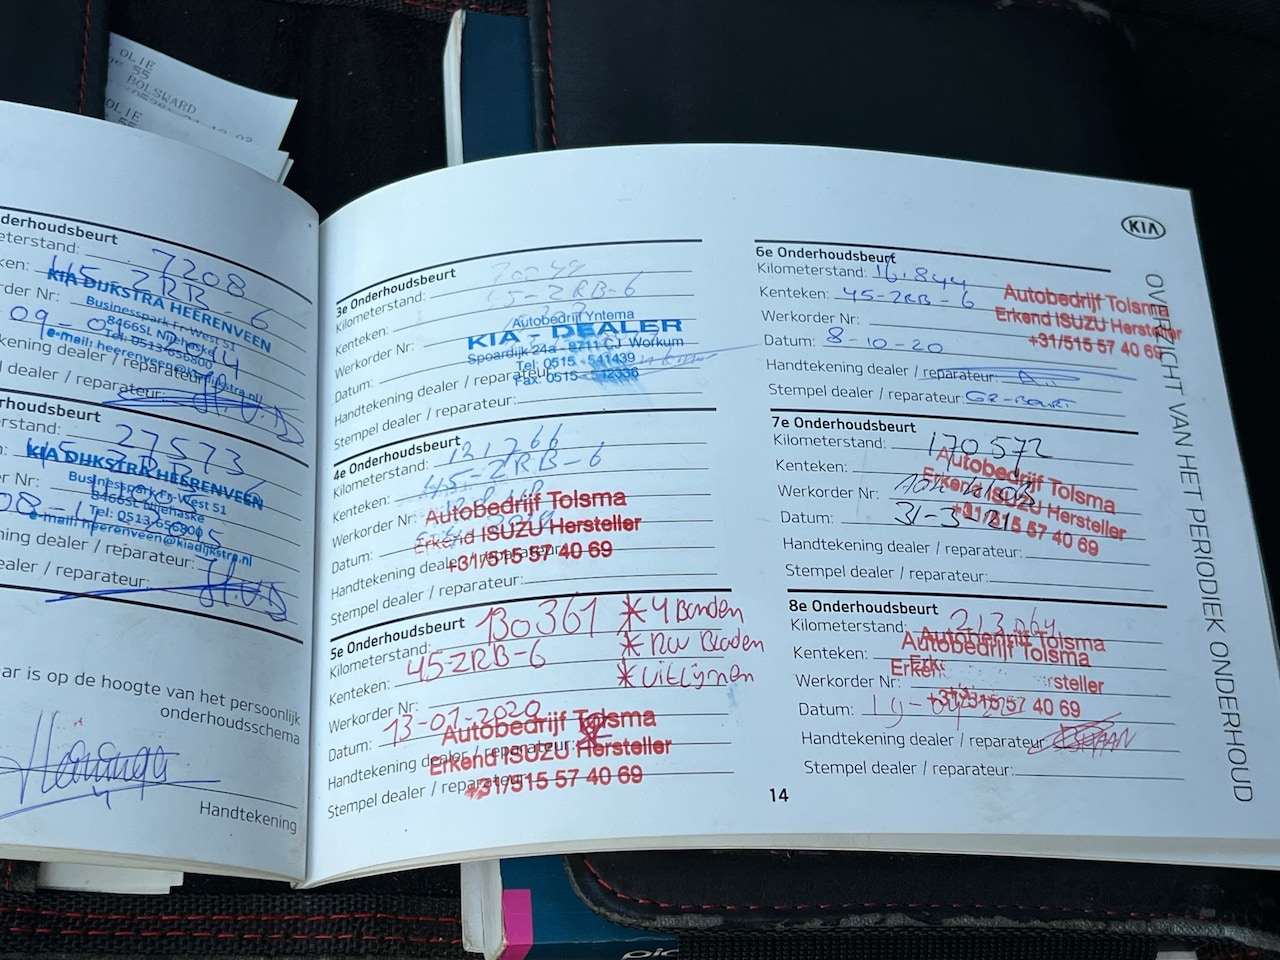 OLIE
55
BOLSWARD
OLIE
55
derhoudsbeurt
eterstand: 7208
ken: 45-ZRB-6
KIA DIJKSTRA HEERENVEEN
Businesspark Fr-West 51
8466SL Nijehaske
Tel: 0513-656800
e-mail: heerenveen@kiadijkstra.nl
rder Nr:
09
kening dealer / reparateur:
l dealer / reparateur:
rhoudsbeurt
rstand: 27573
KIA DIJKSTRA HEERENVEEN
Businesspark Fr-West 51
8466SL Nijehaske
Tel: 0513-656800
e-mail: heerenveen@kiadijkstra.nl
er Nr:
08-
ning dealer / reparateur:
ealer / reparateur:
ar is op de hoogte van het persoonlijk
onderhoudsschema
Handtekening
3e Onderhoudsbeurt
Kilometerstand:
Kenteken: 45-ZRB-6
Werkorder Nr:
Autobedrijf Yntema
KIA - DEALER
Spoardijk 24a - 8711 CJ Workum
Tel: 0515 - 541439
Fax: 0515 - 542336
Datum:
Handtekening dealer / reparateur:
Stempel dealer / reparateur:
4e Onderhoudsbeurt
Kilometerstand: 121766
Kenteken: 45-ZRB-6
Werkorder Nr:
Autobedrijf Tolsma
Erkend ISUZU Hersteller
+31/515 57 40 69
Datum:
Handtekening dealer / reparateur:
Stempel dealer / reparateur:
5e Onderhoudsbeurt
Kilometerstand: 130361
Kenteken: 45-ZRB-6
* 4 Banden
* RW Bladen
* Uitlijnen
Werkorder Nr:
Datum: 13-01-2020
Autobedrijf Tolsma
Erkend ISUZU Hersteller
+31/515 57 40 69
Handtekening dealer / reparateur:
Stempel dealer / reparateur:
6e Onderhoudsbeurt
Kilometerstand: 16.844
Kenteken: 45-ZRB-6
Werkorder Nr:
Autobedrijf Tolsma
Erkend ISUZU Hersteller
+31/515 57 40 69
Datum: 8-10-20
Handtekening dealer / reparateur:
Stempel dealer / reparateur: GR-BEURT
7e Onderhoudsbeurt
Kilometerstand: 170572
Kenteken:
Autobedrijf Tolsma
Erkend ISUZU Hersteller
+31/515 57 40 69
Werkorder Nr:
Datum: 31-3-21
Handtekening dealer / reparateur:
Stempel dealer / reparateur:
8e Onderhoudsbeurt
Kilometerstand: 213064
Autobedrijf Tolsma
Autobedrijf Tolsma
Kenteken:
Werkorder Nr:
Datum:
Handtekening dealer / reparateur:
Stempel dealer / reparateur:
14
KIA
OVERZICHT VAN HET PERIODIEK ONDERHOUD